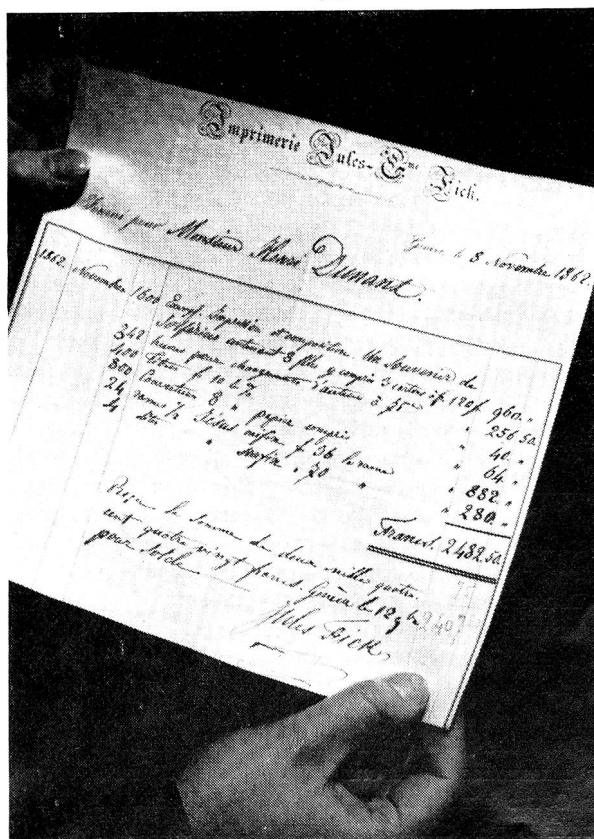 Imprimerie Jules-Gme Fick.
Genève le 8 Novembre 1862.
pour Monsieur Henri Dunant.
1862. Novembre 1600 Exempl. Impression et composition Un Souvenir de
Solferino contenant 8 flles y compris 3 cartons à f. 120 f. 960. "
342 heures pour changements d'auteur à 75 cmes " 256.50.
400 Titres f. 10 le % " 40. "
800 Couvertures 8 " papier compris " 64. "
24 rames ½ Jésus f 36 la rame " 882. "
4 " " 70 " " 280. "
Francs. 2482.50.
Reçu la somme de deux mille quatre
cent quatre vingt francs. Genève le 12 9bre
pour solde
Jules Fick,